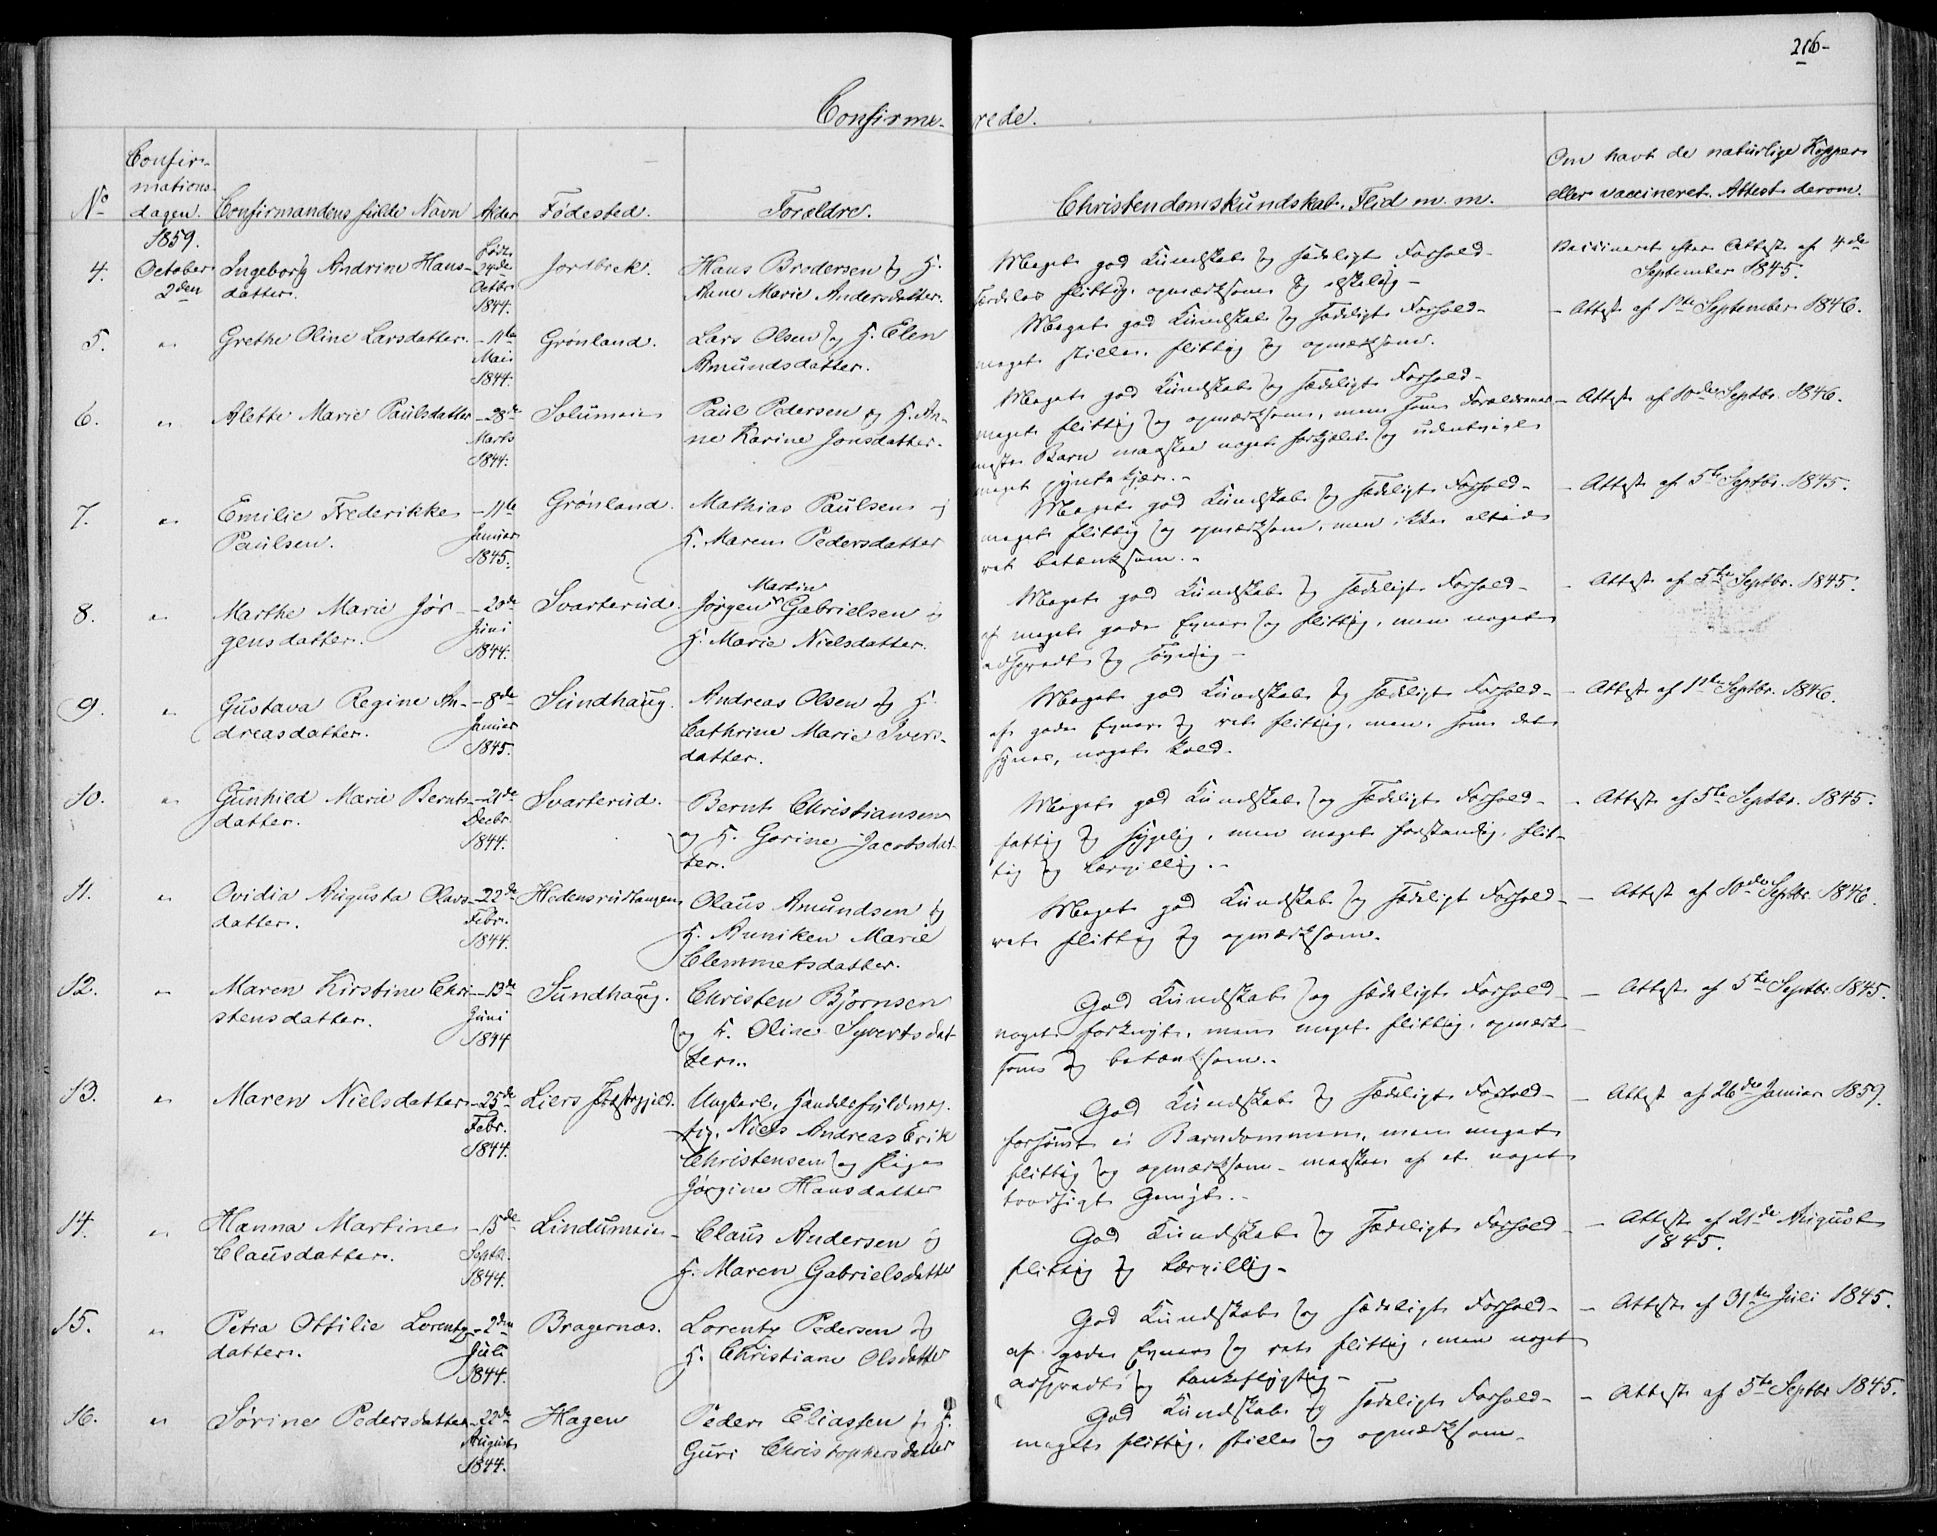 216-
Confirme- rede.
No
Confir-
mations-
dagen.
Confirmandens fulde Navn
Alder
Fødested.
Forældre.
Christendomskundskab, Flid m. m.
Om havt de naturlige Kopper
eller vaccineret. Attest derom.
1859.
4. October 2den
Ingeborg Andrine Hans-
datter.
Født 24de Octbr. 1844.
Jordbrek.
Hans Brodersen og H.
Anne Marie Andersdatter.
Meget god Kundskab og sædeligt Forhold-
flittig, opmærksom og elskelig-
Vaccineret efter Attest af 4de
September 1845.
5. "
Grethe Oline Larsdatter.
- 11te Mai 1844.
Grønland.
Lars Olsen og H. Elen
Amundsdatter.
Meget god Kundskab og sædeligt Forhold-
meget stille, flittig og opmærksom.
- Attest af 1ste September 1846.
6. "
Alette Marie Paulsdatter
- 28de Marts 1844.
Solumeie
Paul Pedersen og H. An-
ne Karine Jonsdatter.
Meget god Kundskab og sædeligt Forhold-
meget flittig og opmærksom, men som Forældrenes
Barn maaskee noget forkjælet og udentvivl
meget pyntekjær.-
- Attest af 10de Septbr. 1846.
7. "
Emilie Frederikke
Paulsen.
- 11te Januar 1845.
Grønland.
Mathias Paulsen og
H. Maren Pedersdatter
Meget god Kundskab og sædeligt Forhold-
meget flittig og opmærksom, men ikke altid
ret betænksom.-
- Attest af 5te Septbr. 1845.
8. "
Marthe Marie Jør-
gensdatter.
- 20de Juni 1844.
Svarterud.
Martin
Jørgen Gabrielsen og
H. Marie Nielsdatter.
Meget god Kundskab og sædeligt Forhold-
af meget gode Evner og flittig, men noget
adspredt og søvnig-
- Attest af 5te Septbr. 1845.
9. "
Gustava Regine An-
dreasdatter.
- 8de Januar 1845.
Sundhaug.
Andreas Olsen og H.
Cathrine Marie Ivers-
datter.
Meget god Kundskab og sædeligt Forhold-
af gode Evner og ret flittig, men, som det
synes, noget kold.
- Attest af 1ste Septbr. 1846.
10. "
Gunhild Marie Bernts-
datter.
- 21de Decbr. 1844.
Svarterud.
Bernt Christiansen
og H. Gorine Jacobsdat-
ter.
Meget god Kundskab og sædeligt Forhold-
fattig og sygelig, men meget forstandig, flit-
tig og lærvillig.-
- Attest af 5te Septbr. 1845.
11. "
Ovidia Augusta Olavs-
datter.
- 22de Febr. 1844.
Hedensrudhangen
Olaus Amundsen og
H. Anniken Marie
Clemmetsdatter.
Meget god Kundskab og sædeligt Forhold-
ret flittig og opmærksom.
- Attest af 10de Septbr. 1846.
12. "
Maren Kirstine Chri-
stensdatter.
- 13de Juni 1844
Sundhaug.
Christen Bjørnsen
og H. Oline Syvertsdat-
ter.
God Kundskab og sædeligt Forhold-
noget forknyt, men meget flittig, opmærk-
som og betænksom.-
- Attest af 5te Septbr. 1845.
13. "
Maren Nielsdatter
- 25de Febr. 1844.
Liers Præstegjeld.
Ungkarl, Handelsfuldmæg-
tig, Niels Andreas Erik
Christensen og Pige
Jørgine Hansdatter
God Kundskab og sædeligt Forhold-
forsømt i Barndommen, men meget
flittig og opmærksom - maaskee af et noget
tvedsigt Gemyt.-
- Attest af 26de Januar 1859.
14. "
Hanna Martine
Clausdatter.
- 15de Septb. 1844.
Lindumeie
Claus Andersen og
H. Maren Gabrielsdatter
God Kundskab og sædeligt Forhold
flittig og lærvillig-
- Attest af 21de August
1845.
15. "
Petra Ottilie Lorentz-
datter.
- 2den Juli 1844.
Bragernæs.
Lorentz Pedersen og
H. Christiane Olsdatter
God Kundskab og sædeligt Forhold-
af gode Evner og ret flittig, men noget
adspredt og tankeflygtig-
- Attest af 31te Juli 1845.
16. "
Sørine Pedersdatter
- 22de August 1844.
Hagen
Peder Eliassen og H.
Guri Christophersdatter
God Kundskab og sædeligt Forhold-
meget flittig, stille og opmærksom-
- Attest af 5te Septbr 1845.